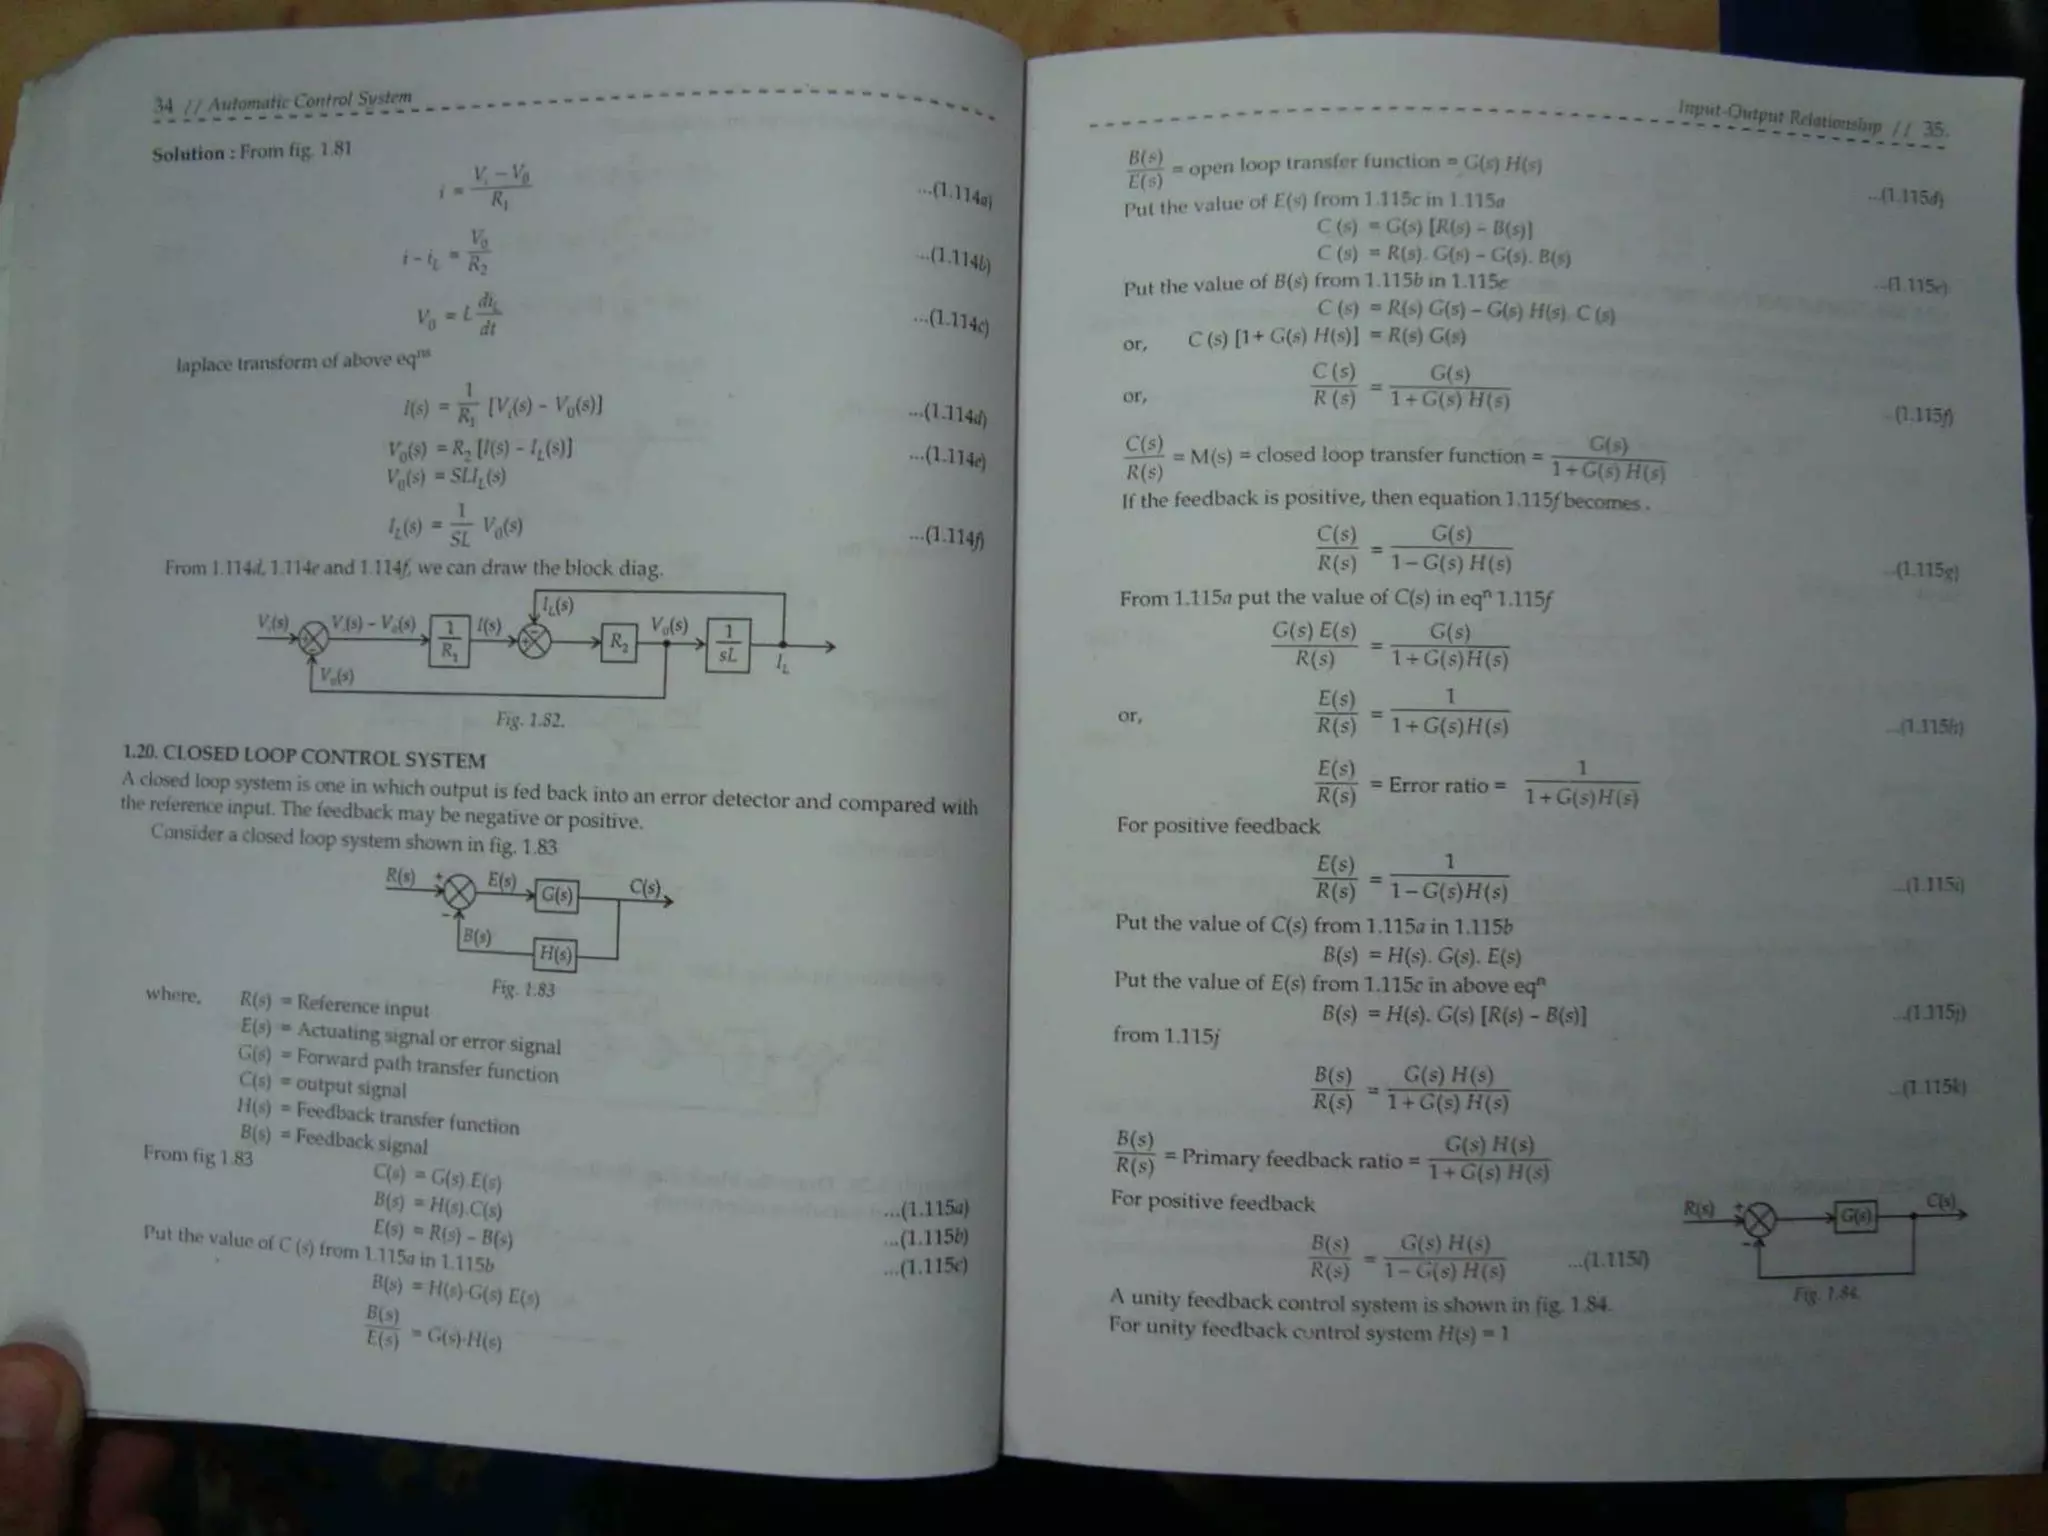 34 // Automatic Control System
Solution : From fig. 1.81
i = (Vi − V0)/R1 ...(1.114a)
i − iL = V0/R2 ...(1.114b)
V0 = L diL/dt ...(1.114c)
laplace transform of above eqns
I(s) = 1/R1 [Vi(s) − V0(s)] ...(1.114d)
V0(s) = R2 [I(s) − IL(s)] ...(1.114e)
V0(s) = SLIL(s)
IL(s) = 1/SL V0(s) ...(1.114f)
From 1.114d, 1.114e and 1.114f, we can draw the block diag.
Vi(s) + − Vi(s) − Vo(s) 1/R1 I(s) + − IL(s) R2 Vo(s) 1/sL IL
Vo(s)
Fig. 1.82.
1.20. CLOSED LOOP CONTROL SYSTEM
A closed loop system is one in which output is fed back into an error detector and compared with
the reference input. The feedback may be negative or positive.
Consider a closed loop system shown in fig. 1.83
R(s) + − E(s) G(s) C(s)
B(s) H(s)
Fig. 1.83
where, R(s) = Reference input
E(s) = Actuating signal or error signal
G(s) = Forward path transfer function
C(s) = output signal
H(s) = Feedback transfer function
B(s) = Feedback signal
From fig 1.83
C(s) = G(s).E(s) ...(1.115a)
B(s) = H(s).C(s) ...(1.115b)
E(s) = R(s) − B(s) ...(1.115c)
Put the value of C (s) from 1.115a in 1.115b
B(s) = H(s)·G(s) E(s)
B(s)/E(s) = G(s)·H(s)
Input-Output Relationship // 35.
B(s)/E(s) = open loop transfer function = G(s) H(s) ...(1.115d)
Put the value of E(s) from 1.115c in 1.115a
C (s) = G(s) [R(s) − B(s)]
C (s) = R(s). G(s) − G(s). B(s) ...(1.115e)
Put the value of B(s) from 1.115b in 1.115e
C (s) = R(s) G(s) − G(s) H(s). C (s)
or, C (s) [1+ G(s) H(s)] = R(s) G(s)
or, C (s)/R (s) = G(s)/(1 + G(s) H(s)) ...(1.115f)
C(s)/R(s) = M(s) = closed loop transfer function = G(s)/(1 + G(s) H(s))
If the feedback is positive, then equation 1.115f becomes .
C(s)/R(s) = G(s)/(1 − G(s) H(s)) ...(1.115g)
From 1.115a put the value of C(s) in eqn 1.115f
G(s) E(s)/R(s) = G(s)/(1 + G(s)H(s))
or, E(s)/R(s) = 1/(1 + G(s)H(s)) ...(1.115h)
E(s)/R(s) = Error ratio = 1/(1 + G(s)H(s))
For positive feedback
E(s)/R(s) = 1/(1 − G(s)H(s)) ...(1.115i)
Put the value of C(s) from 1.115a in 1.115b
B(s) = H(s). G(s). E(s)
Put the value of E(s) from 1.115c in above eqn
B(s) = H(s). G(s) [R(s) − B(s)] ...(1.115j)
from 1.115j
B(s)/R(s) = G(s) H(s)/(1 + G(s) H(s)) ...(1.115k)
B(s)/R(s) = Primary feedback ratio = G(s) H(s)/(1 + G(s) H(s))
For positive feedback
B(s)/R(s) = G(s) H(s)/(1 − G(s) H(s)) ...(1.115l)
R(s) + − G(s) C(s)
Fig. 1.84.
A unity feedback control system is shown in fig. 1.84.
For unity feedback control system H(s) = 1